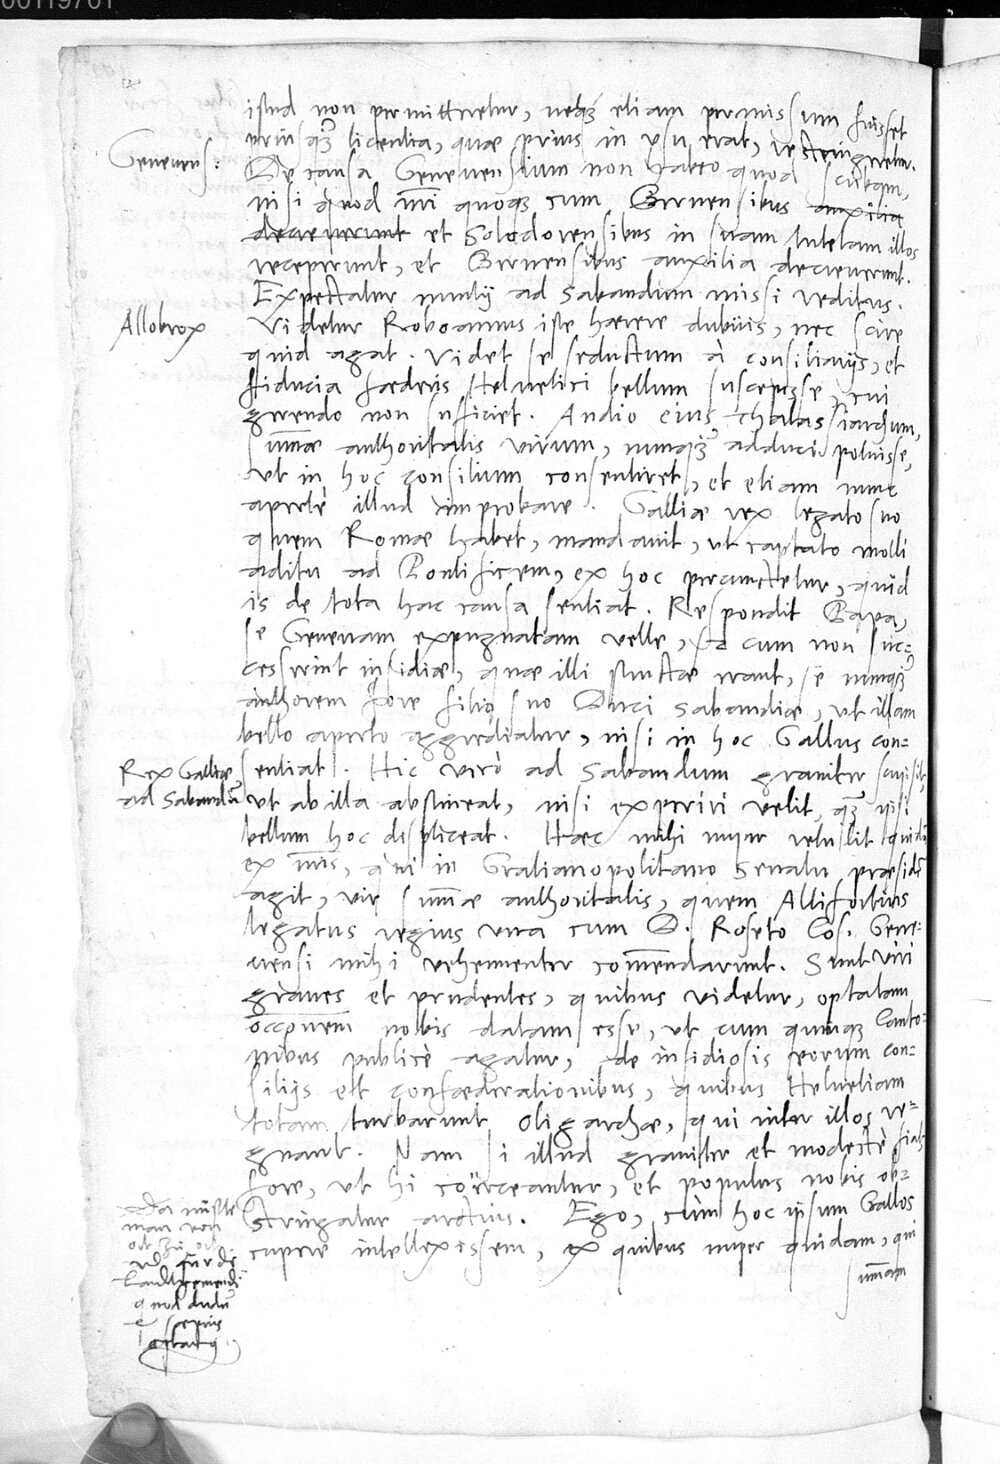 00119701
istud non permitteretur, neque etiam permissum fuisset
utrinsque licentia, quae prius in usu erat, restringeretur.
Genevens:
De causa Genevensium non habeo quod scribam,
nisi quod nri quoque cum Bernensibus auxilia
decreverunt et Solodorensibus in suam tutelam illos
receperunt, et Bernensibus auxilia decreverunt.
Expectatur nuntij ad Sabaudum missi reditus.
Allobrox
Videtur Roboamus iste haerere dubius, nec scire
quid agat. Videt se seductum à consiliarijs, et
fiducia foederis Helvetici bellum suscepisse, cui
gerendo non sufficiet. Audio eius thalassiarchum,
summae authoritatis virum, nunquam adduci potuisse,
ut in hoc consilium consentiret, et etiam nunc
apertè illud improbare. Galliae rex legato suo
quem Romae habet, mandavit, ut captato molli
aditu ad Pontificem, ex hoc percunctetur, quid
is de tota hac causa sentiat. Respondit Papa,
se Genevam expugnatam velle, sed cum non suc=
cesserint insidiae, quae illi structae erant, se nunquam
authorem fore filio suo Duci Sabaudiae, ut illam
bello aperto aggrediatur, nisi in hoc Gallus con=
Rex Galliae
ad Sabaudū
sentiat. Hic verò ad Sabaudum graviter scripsit,
ut ab illa abstineat, nisi experiri velit, quam ipsi
bellum hoc displiceat. Haec mihi nuper retulit quidā
ex nris, qui in Gratianopolitano Senatu praesidē
agit, vir summae authoritatis, quem Allifortius
legatus regius una cum D. Roseto Cos. Gene=
vensi mihi vehementer comendarunt. Sunt viri
graves et prudentes, quibus videtur, optatam
occonem nobis datam esse, ut cum quinque Canto=
nibus publicè agatur, de insidiosis eorum con=
silijs et confoederationibus, quibus Helvetiam
totam turbarunt Oligarchae, qui inter illos re=
gnant. Nam si illud graviter et modestè fiat
fore, ut hi coërceantur, et populus nobis ob=
stringatur arctius. Ego, cùm hoc ipsum Gallos
cupere intellexissem, ex quibus nuper quidam, qui
summam
Da müste
man von
ort zu ort
für die
Landtsgemeindē
quod dudū
et saepius
optavi